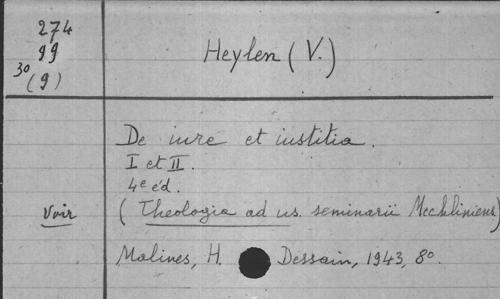 274
99
30
(9)
Heylen (V.)
De iure et iustitia.
I et II.
4e éd.
Voir
(Theologia ad us. seminarii Mechliniens)
Malines, H. Dessain, 1943, 8o.